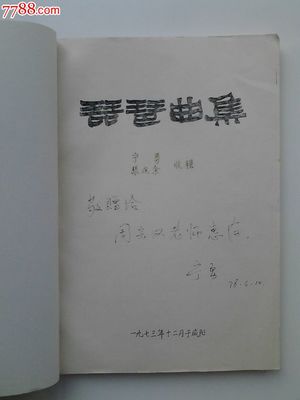 7788.com
琵琶曲集
宁勇
收辑
敬赠给
周 老师惠存。
宁勇
78.6.10
一九七三年十二月于咸阳